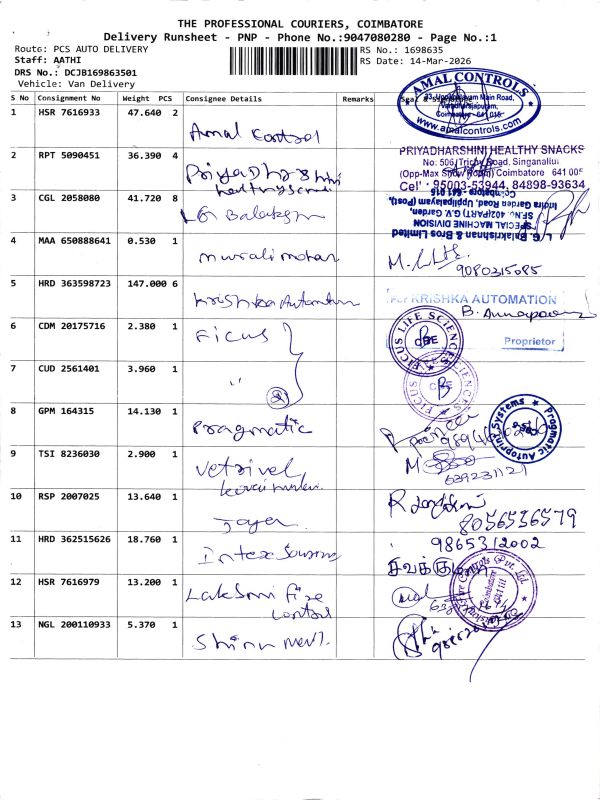 THE PROFESSIONAL COURIERS, COIMBATORE
Delivery Runsheet - PNP - Phone No.:9047080280 - Page No.:1
Route: PCS AUTO DELIVERY
RS No.: 1698635
Staff: AATHI
RS Date: 14-Mar-2026
DRS No.: DCJB169863501
Vehicle: Van Delivery
S No Consignment No Weight PCS Consignee Details Remarks
1 HSR 7616933 47.640 2
Amal Control
AMAL CONTROLS
Coimbatore - 641 015
www.amalcontrols.com
2 RPT 5090451 36.390 4
Priyadharshini
PRIYADHARSHINI HEALTHY SNACKS
No: 506, Trichy Road, Singanallur
(Opp-Max Show Room) Coimbatore 641 005
Cell: 95003-53944, 84898-93634
3 CGL 2058080 41.720 8
LG Balakrishnan
L.G. Balakrishnan & Bros Limited
SPECIAL MACHINE DIVISION
SF.No. 402(PART) G.V. Garden,
Indira Garden Road, Uppilipalayam (Post),
Coimbatore - 641 015
4 MAA 650888641 0.530 1
murali mohan
9080315085
5 HRD 363598723 147.000 6
Krishka Automation
For KRISHKA AUTOMATION
Proprietor
6 CDM 20175716 2.380 1
Ficus
FICUS LIFE SCIENCES
CBE
7 CUD 2561401 3.960 1
"
FICUS LIFE SCIENCES
CBE
8 GPM 164315 14.130 1
Pragmatic
Pragmatic Autoprint Systems
9 TSI 8236030 2.900 1
Vetrivel
639231121
10 RSP 2007025 13.640 1
Jayem
8056536579
11 HRD 362515626 18.760 1
Intex
9865312002
12 HSR 7616979 13.200 1
Lakshmi Fire
Control
13 NGL 200110933 5.370 1